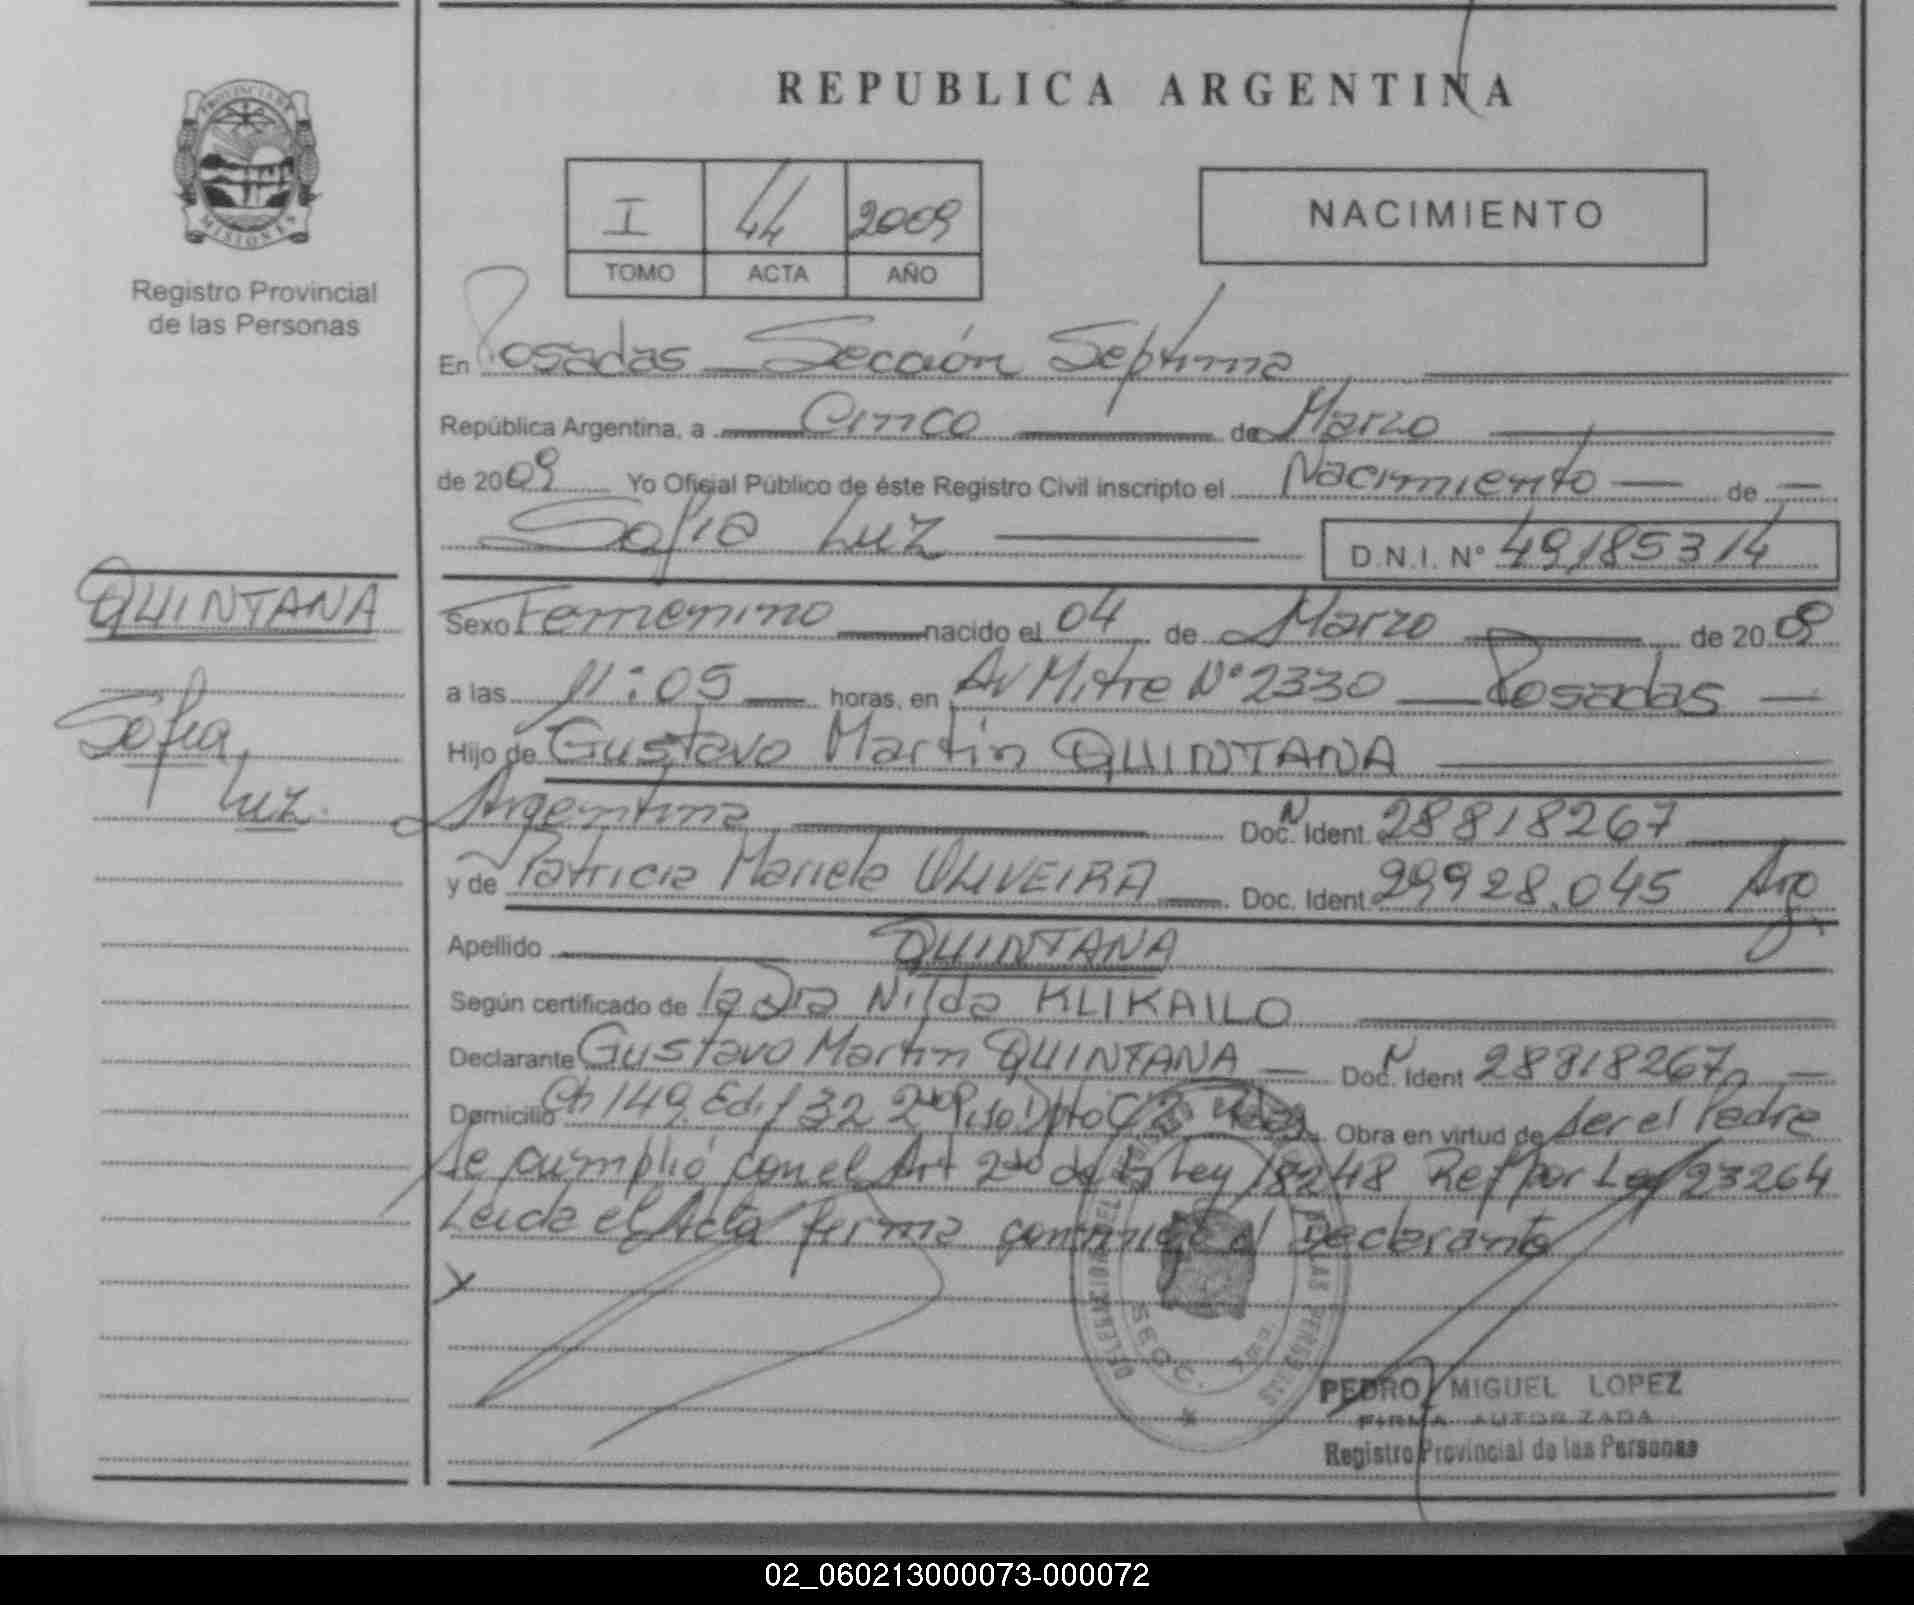 REPUBLICA ARGENTINA
PROVINCIA DE
MISIONES
Registro Provincial
de las Personas
I 44 2009
TOMO ACTA AÑO
NACIMIENTO
En Posadas Sección Septima
República Argentina, a Cinco de Marzo
de 2009 Yo Oficial Público de éste Registro Civil inscripto el Nacimiento de
Sofia Luz D.N.I. N° 49.185314
QUINTANA
Sofia
Luz.
Sexo Femenino nacido el 04 de Marzo de 20 09
a las 11:05 horas, en Av Mitre N° 2330 Posadas
Hijo de Gustavo Martin QUINTANA
Argentina Doc. Ident. N 28818267
y de Patricia Mariela OLIVEIRA Doc. Ident. 29928.045 Arg
Apellido QUINTANA
Según certificado de la Dra Nilda KLIKAILO
Declarante Gustavo Martin QUINTANA Doc. Ident N 28818267
Domicilio Ch 149 Edif 32 2do Piso Dpto C Obra en virtud de Ser el Padre
Se cumplió con el Art 2do de la Ley 18248 Ref por Ley 23264
Leida el Acta firma conmigo el Declarante
PEDRO MIGUEL LOPEZ
FIRMA AUTORIZADA
Registro Provincial de las Personas
02_060213000073-000072